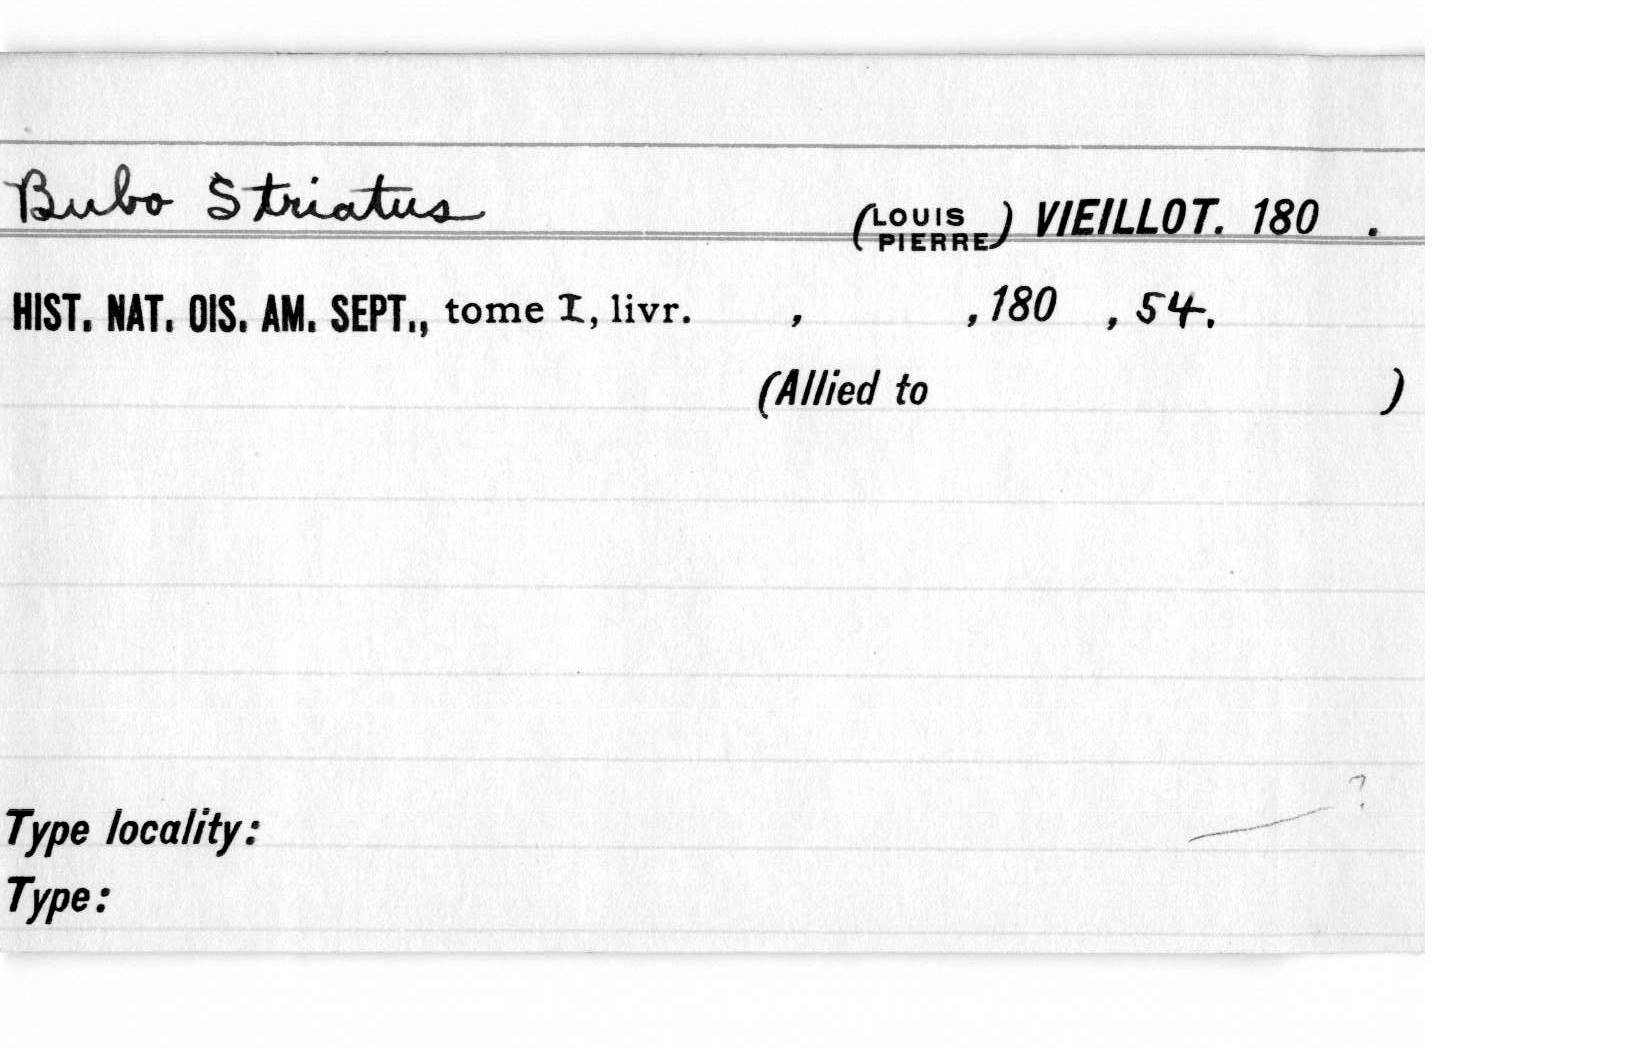 Bubo Striatus (LOUIS PIERRE) VIEILLOT. 180 .
HIST. NAT. OIS. AM. SEPT., tome I, livr. , , 180 , 54.
(Allied to )
?
Type locality:
Type: